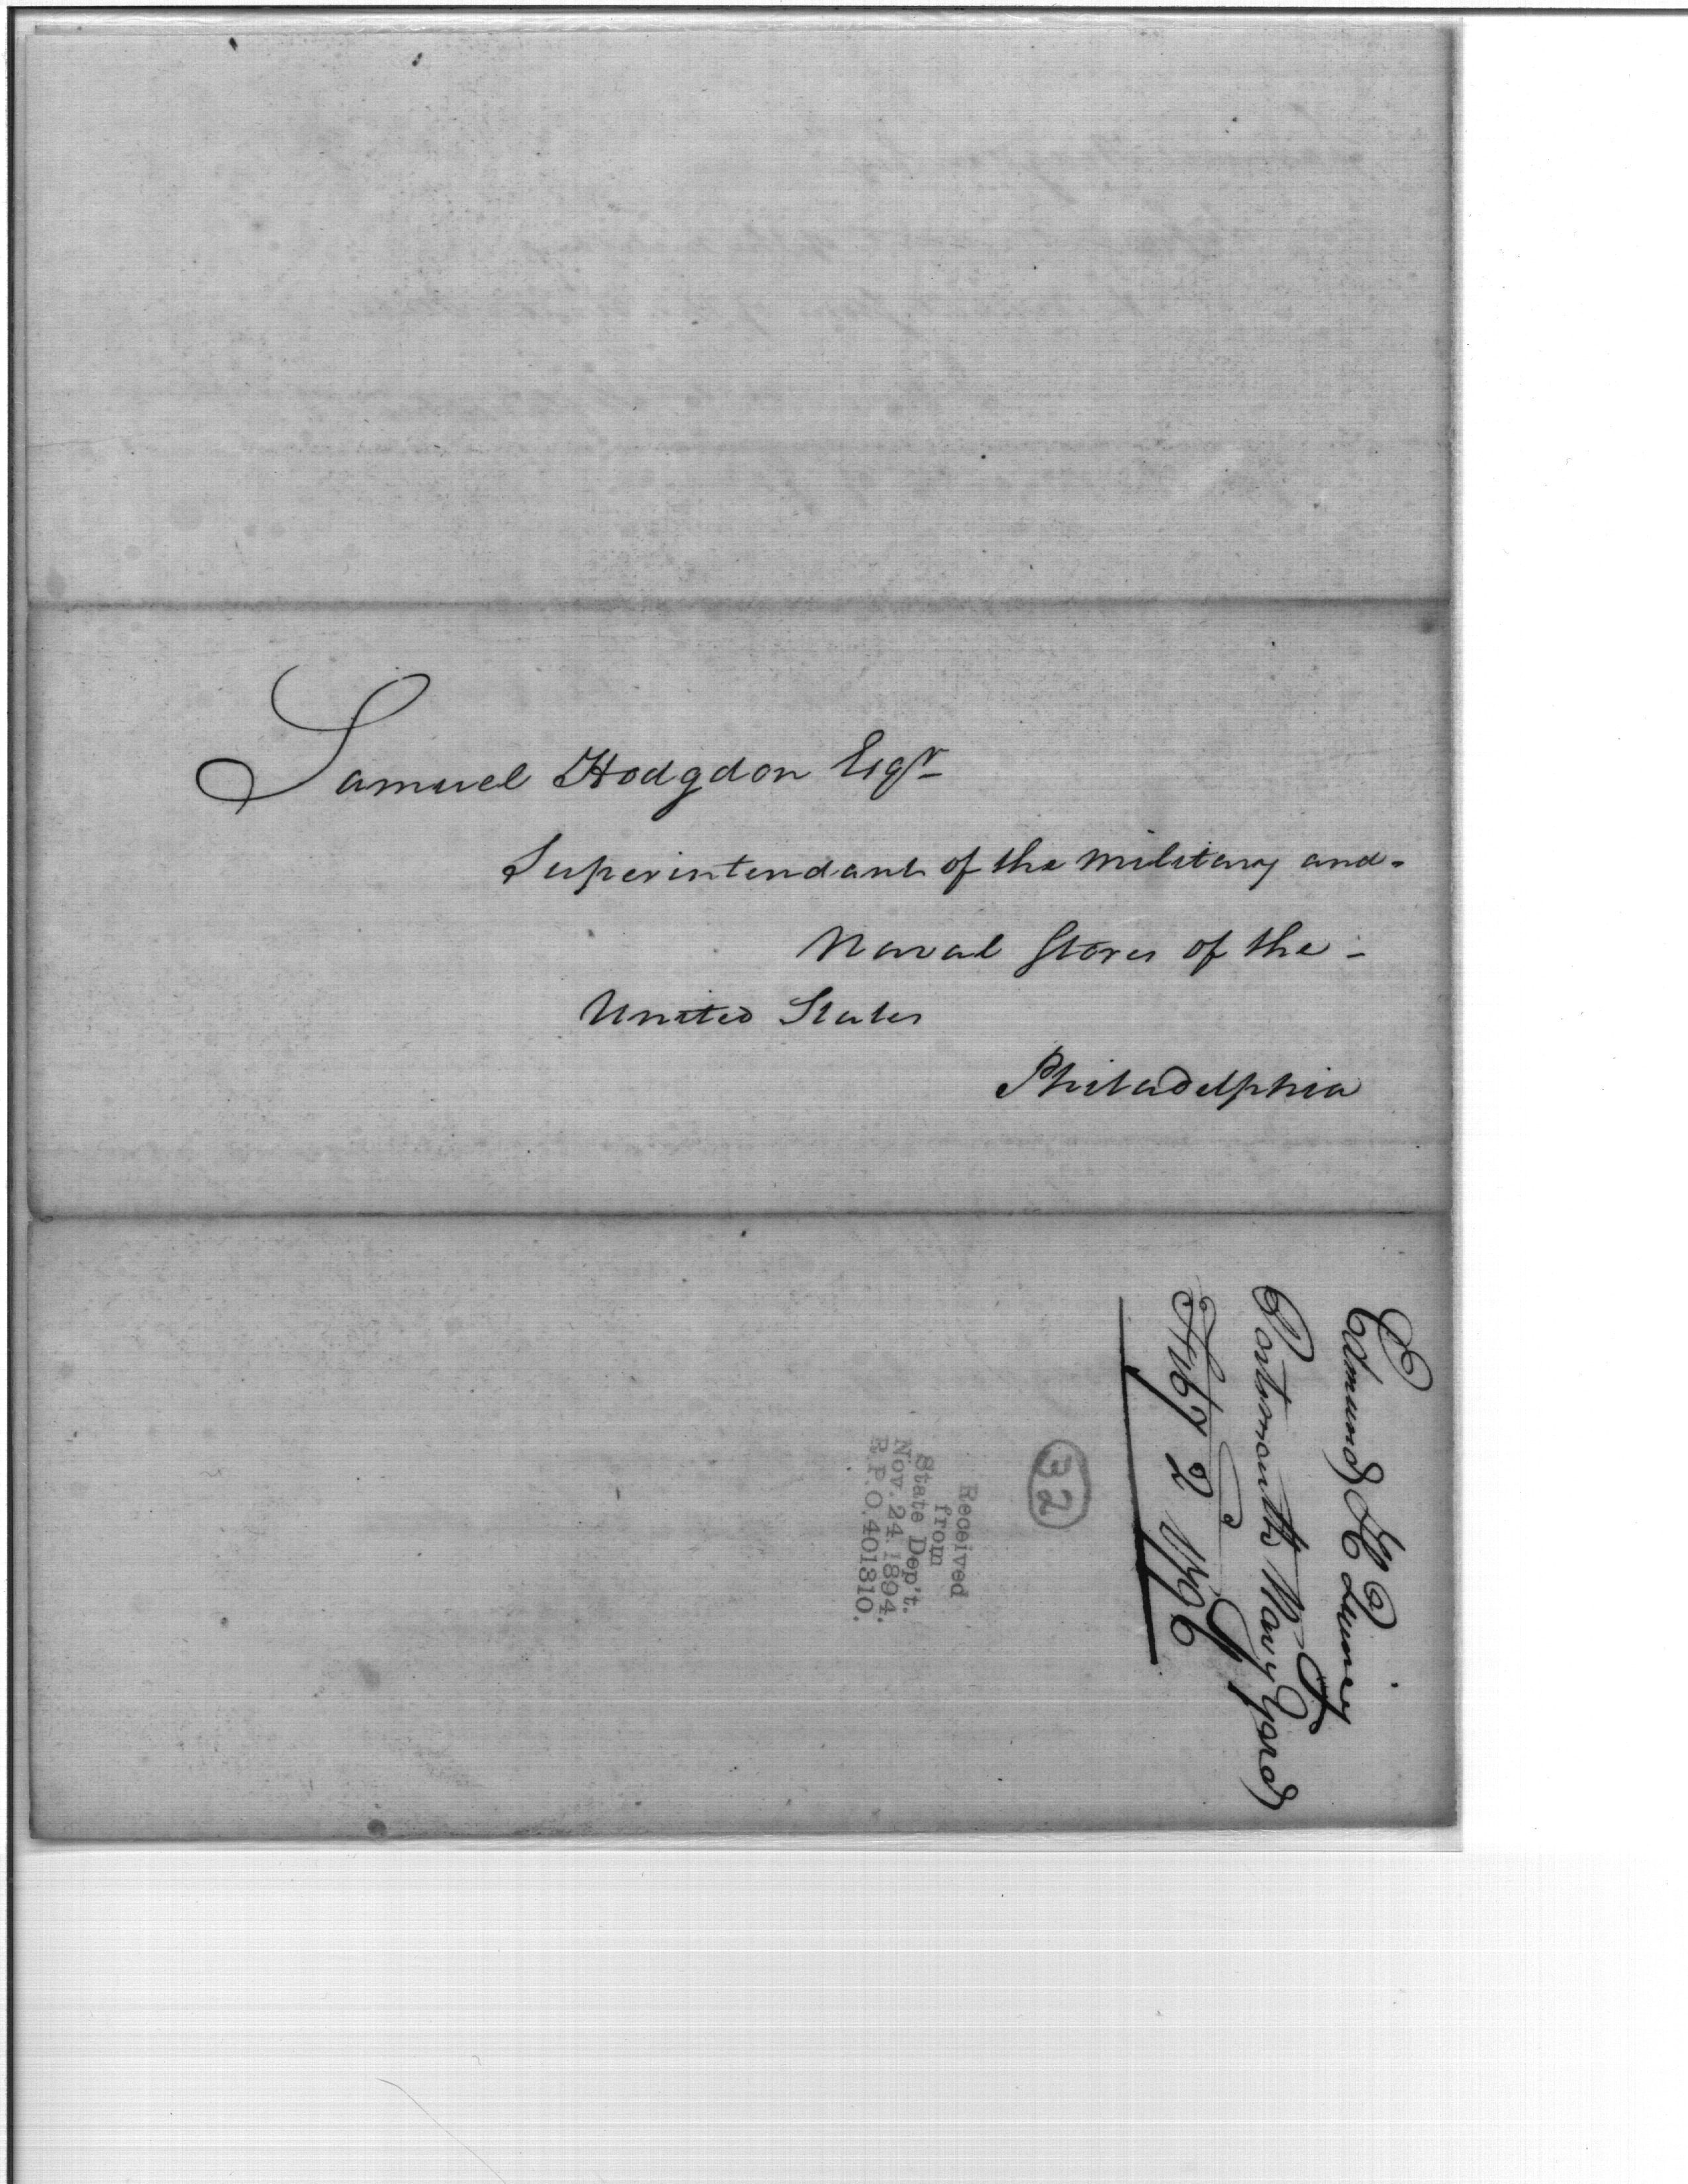 Samuel Hodgdon Esqr
Superintendant of the Military and-
Naval Stores of the -
United States
Philadelphia
Edmund H Quincy
Portsmouth Navy Yard
Feby 2 1796
32
Received
from
State Dep't.
Nov. 24. 1894.
R.P.O. 401310.